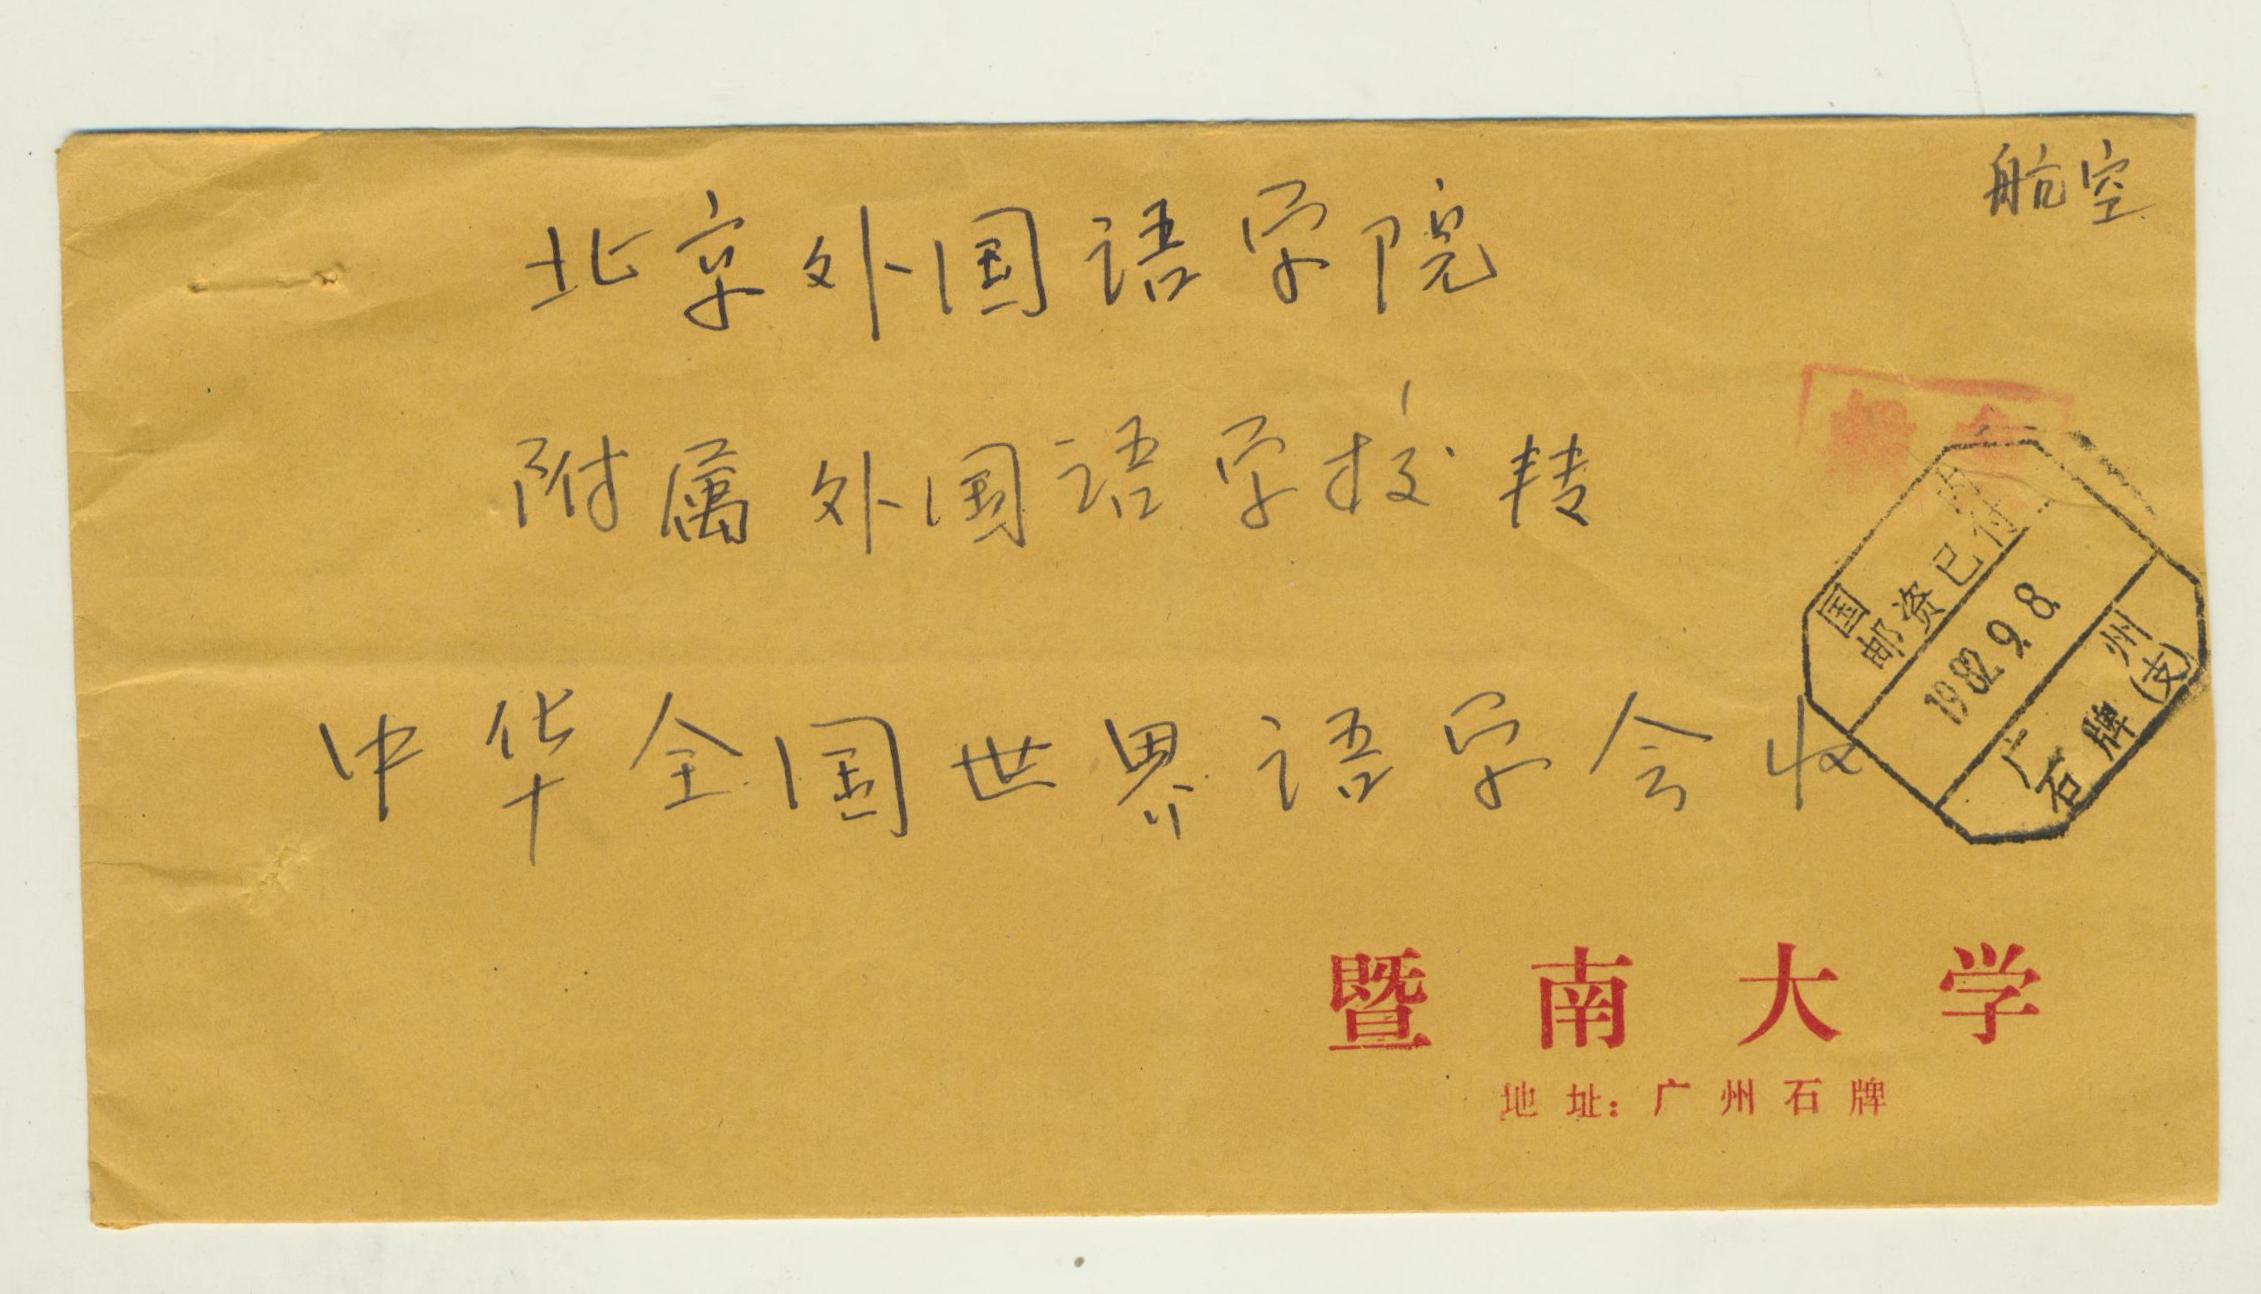 航空
北京外国语学院
附属外国语学校转
中华全国世界语学会收
国内
邮资已付
1982.9.8.
广州
石牌(支)
暨南大学
地址：广州石牌